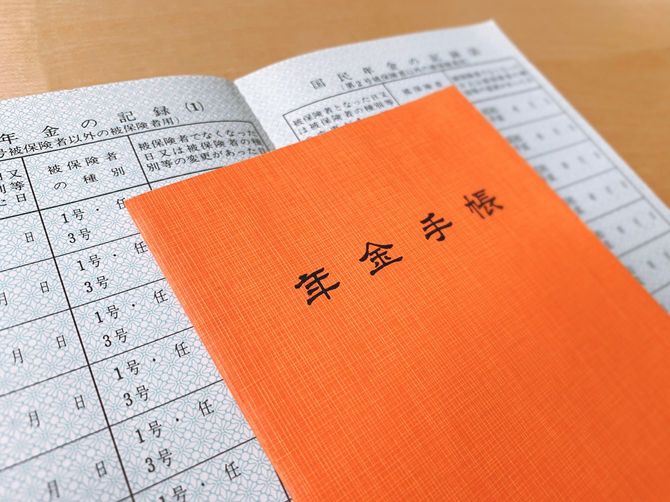 年金の記録(1)
号被保険者以外の被保険者用)
日又
別等
た日
被保険者
の種別
被保険者でなくなった
日又は被保険者の種
別等の変更があった
日
1号・任
3号
月 日
1号・任
3号
月 日
1号・任
3号
月 日
1号・任
3号
月 日
1号・任
3号
月 日
1号・任
国民年金の記録
(第2号被保険者以外の被保険者
被保険者となった日又
は被保険者の種別等
被保険者
年金手帳